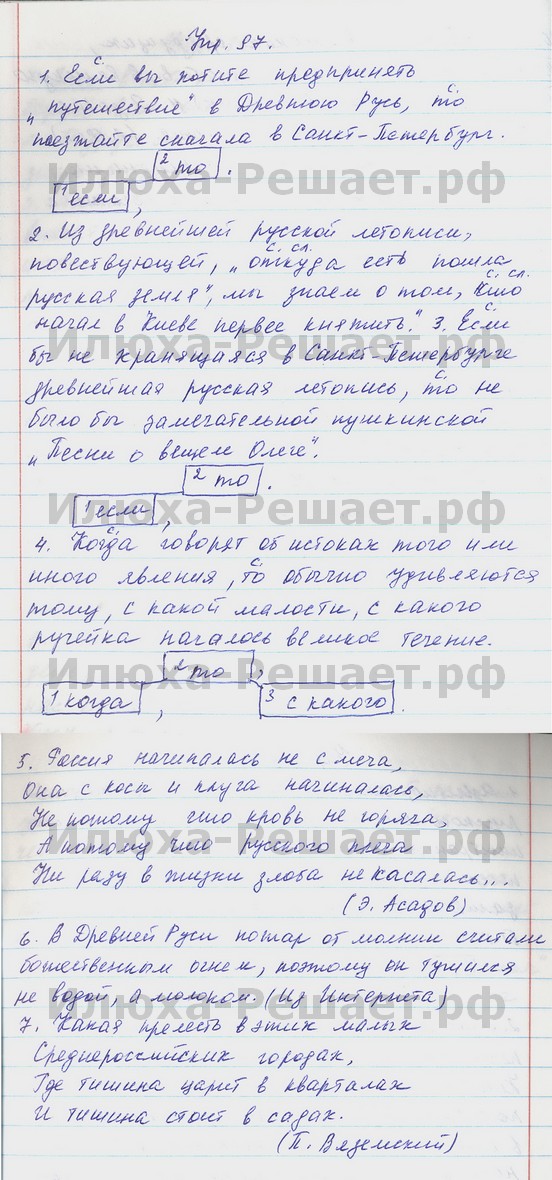 Упр. 97.
с.
1. Если вы хотите предпринять
с.
„путешествие“ в Древнюю Русь, то
поезжайте сначала в Санкт-Петербург.
2 то.
1 если,
Илюха-Решает.рф
2. Из древнейшей русской летописи,
с. сл.
повествующей, „откуда есть пошла
с. сл.
русская земля“, мы знаем о том, „кто
с.
начал в Киеве первее княжить“. 3. Если
бы не хранящаяся в Санкт-Петербурге
Илюха-Решает.рф
с.
древнейшая русская летопись, то не
было бы замечательной пушкинской
„Песни о вещем Олеге“.
2 то.
1 если,
Илюха-Решает.рф
с.
4. Когда говорят об истоках того или
с.
иного явления, то обычно удивляются
тому, с какой малости, с какого
ручейка началось великое течение.
2 то,
Илюха-Решает.рф
1 когда, 3 с какого.
5. Россия начиналась не с меча,
Она с косы и плуга начиналась,
Не потому что кровь не горяча,
А потому что русского плеча
Илюха-Решает.рф
Ни разу в жизни злоба не касалась...
(Э. Асадов)
6. В Древней Руси пожар от молнии считали
божественным огнем, поэтому он тушился
Илюха-Решает.рф
не водой, а молоком. (Из Интернета)
7. Какая прелесть в этих малых
Среднероссийских городах,
Где тишина царит в кварталах
Илюха-Решает.рф
И тишина стоит в садах.
(П. Вяземский)